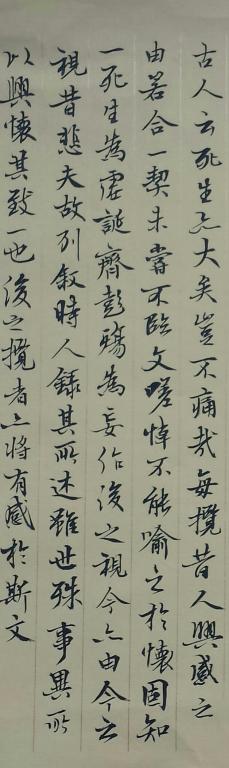 古人云死生亦大矣豈不痛哉每攬昔人興感之
由若合一契未嘗不臨文嗟悼不能喻之於懷固知
一死生為虛誕齊彭殤為妄作後之視今亦由今之
視昔悲夫故列敘時人錄其所述雖世殊事異所
以興懷其致一也後之攬者亦將有感於斯文